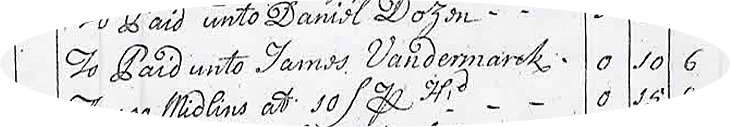 To Paid unto Daniel Dozen - -
To Paid unto James Vandermark - 0 10 6
Midlins at 10/ ⅌ Hd - - - 0 15